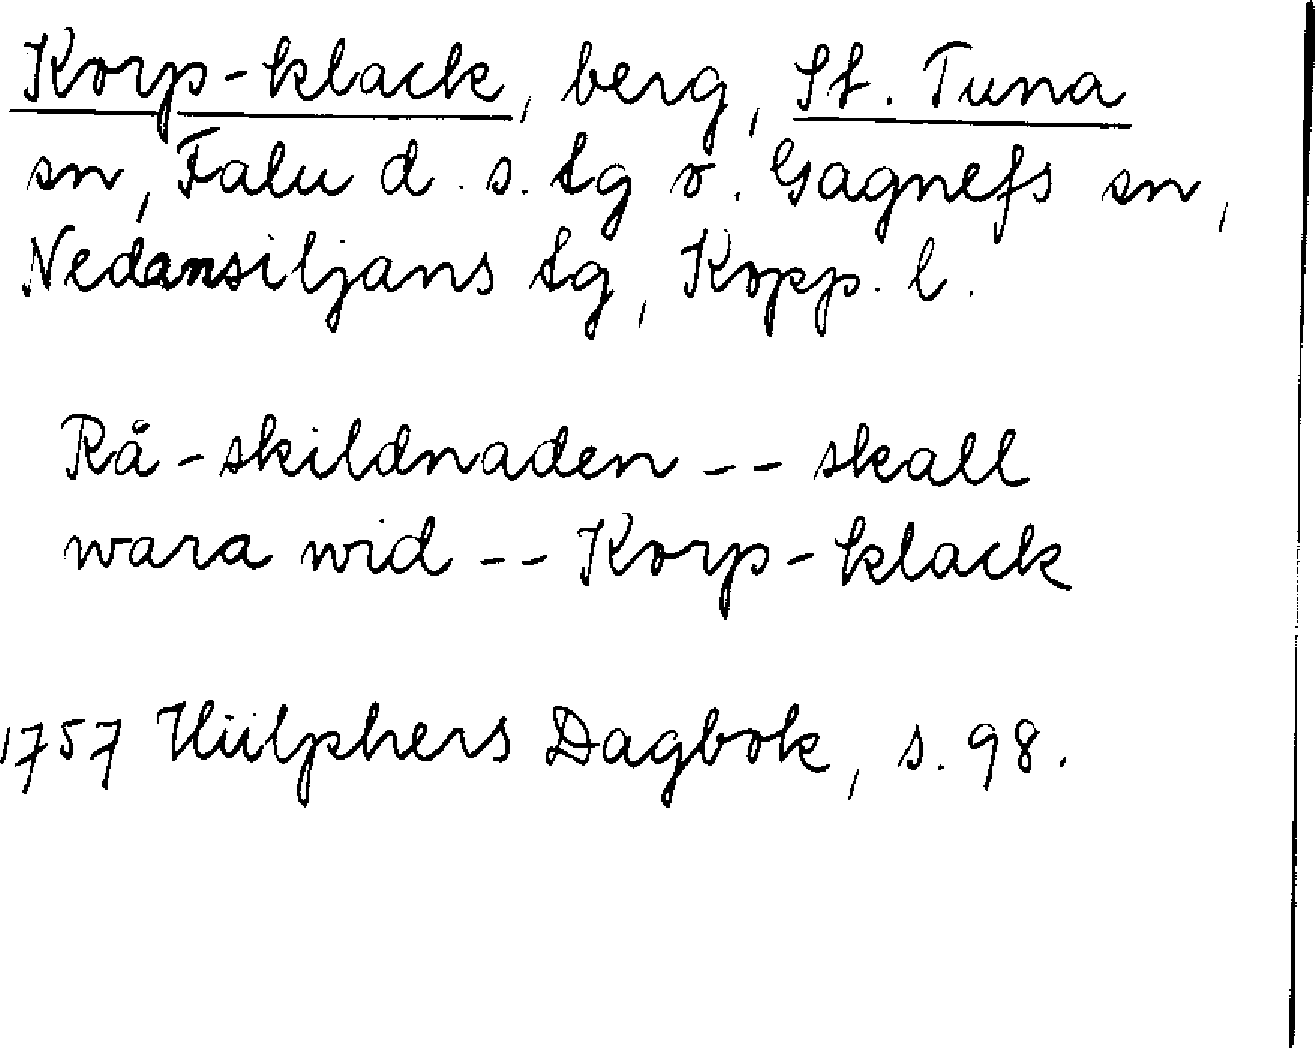 Korp-klack, berg, St. Tuna
sn, Falu d. s. tg o. Gagnefs sn,
Nedansiljans tg, Kopp. l.
Rå-skildnaden -- skall
wara wid -- Korp-klack
1757 Hülphers Dagbok, s. 98.